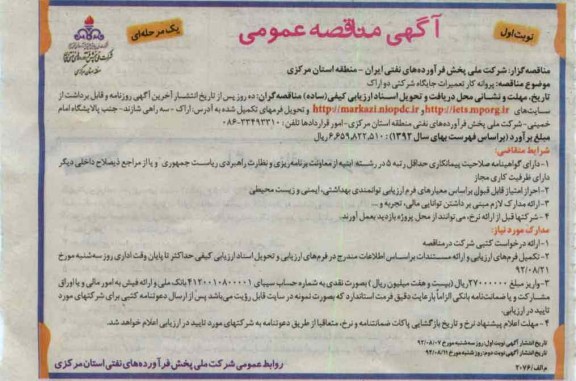 نوبت اول
آگهی مناقصه عمومی
یک مرحله‌ای
مناقصه‌گزار: شرکت ملی پخش فرآورده‌های نفتی ایران - منطقه استان مرکزی
موضوع مناقصه: پروانه کار تعمیرات جایگاه شرکتی دو اراک
تاریخ، مهلت و نشانی محل دریافت و تحویل اسناد ارزیابی کیفی (ساده) مناقصه‌گران: ده روز پس از تاریخ انتشار آخرین آگهی روزنامه و قابل برداشت از
سایت‌های http://iets.mporg.ir و http://markazi.niopdc.ir و تحویل فرمهای تکمیل شده به آدرس: اراک - سه راهی شازند- جنب پالایشگاه امام
خمینی- شرکت ملی پخش فرآورده‌های نفتی منطقه استان مرکزی- امور قراردادها تلفن: ۳۳۴۹۳۳۱۰-۰۸۶
مبلغ برآورد (براساس فهرست بهای سال ۱۳۹۲): ۶,۶۵۹,۸۲۲,۵۱۰ ریال
شرایط متقاضی:
۱- دارای گواهینامه صلاحیت پیمانکاری حداقل رتبه ۵ در رشته ابنیه از معاونت برنامه‌ریزی و نظارت راهبردی ریاست جمهوری و یا از مراجع ذیصلاح داخلی دیگر
دارای ظرفیت کاری مجاز
۲-احراز امتیاز قابل قبول براساس معیارهای فرم ارزیابی توانمندی بهداشتی، ایمنی و زیست محیطی
۳-ارائه مدارک لازم مبنی بر داشتن توانایی مالی، تجربه و...
۴- شرکتها قبل از ارائه نرخ، می‌توانند از محل پروژه بازدید بعمل آورند.
مدارک مورد نیاز:
۱-ارائه درخواست کتبی شرکت در مناقصه
۲- تکمیل فرم‌های ارزیابی و ارائه مستندات براساس اطلاعات مندرج در فرم‌های ارزیابی و تحویل اسناد ارزیابی کیفی حداکثر تا پایان وقت اداری روز سه‌شنبه مورخ
۹۲/۰۸/۲۱
۳-واریز مبلغ ۲۷۰۰۰۰۰۰ ریال (بیست و هفت میلیون ریال) بصورت نقدی به شماره حساب سیبای بانک ملی و ارائه فیش به امور مالی و یا اوراق
مشارکت و یا ضمانت‌نامه بانکی الزاماً با رعایت دقیق فرمت استاندارد که بصورت نمونه در سایت قابل رؤیت می‌باشد پس از ارسال دعوتنامه کتبی برای شرکتهای مورد
تایید در ارزیابی.
۴- مهلت اعلام پیشنهاد نرخ و تاریخ بازگشایی پاکات ضمانتنامه و نرخ، متعاقبا از طریق دعوتنامه به شرکتهای مورد تایید در ارزیابی اعلام خواهد شد.
تاریخ انتشار آگهی نوبت اول: روز سه‌شنبه مورخ ۹۲/۰۸/۰۷
تاریخ انتشار آگهی نوبت دوم: روز شنبه مورخ ۹۲/۰۸/۱۱
م الف/۲۰۷۶
روابط عمومی شرکت ملی پخش فرآورده‌های نفتی استان مرکزی